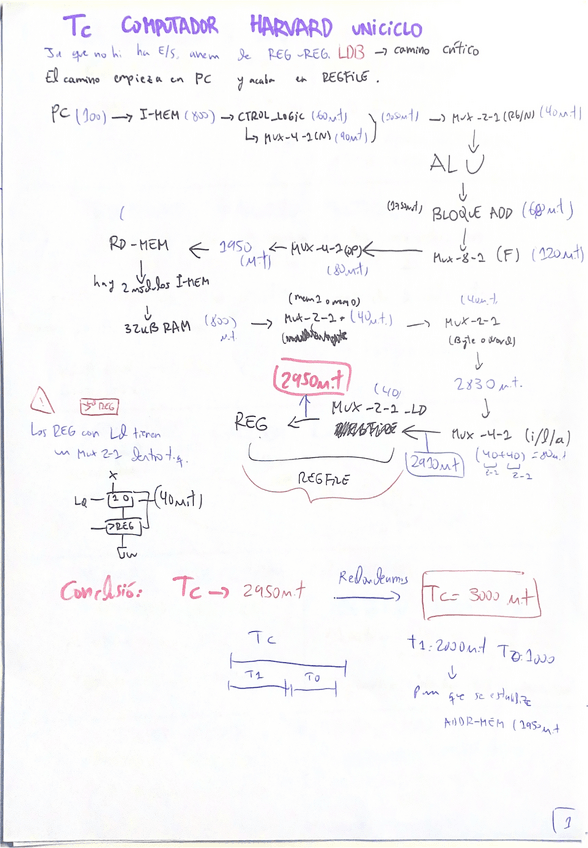 Tc COMPUTADOR HARVARD UNICICLO
Ja que no hi ha E/S, anem de REG-REG. LDB → camino crítico
El camino empieza en PC y acaba en REGFILE.
PC (100) → I-MEM (800) → CTROL_LOGIC (60u.t) → MUX-2-1 (Rb/N) (40u.t)
↳ MUX-4-1 (N) (80u.t)
ALU
BLOQUE ADD
MUX-8-1 (F) (120u.t)
MUX-4-1 (OP)
(80u.t)
1950
(u.t)
RD-MEM
hay 2 modulos I-MEM
32KB RAM (800)
u.t
(mem1 o mem0)
MUX-2-1 + (40u.t.)
(40u.t.
MUX-2-1
(Byte o Word)
2830 u.t.
MUX-4-1 (i/l/a)
(40+40) = 80u.t
2-1 2-1
2910u.t
(40)
MUX-2-1-LD
2950u.t
REG
REGFILE
! >REG
Los REG con Ld tienen
un Mux 2-1 dentro t.q.
X
Ld 1 0 (40u.t)
>REG
Conclusió: Tc → 2950u.t Redondeamos Tc = 3000 u.t
Tc
T1 T0
t1: 2000u.t T0: 1000
para que se estabilize
ADDR-MEM (1950u.t
1